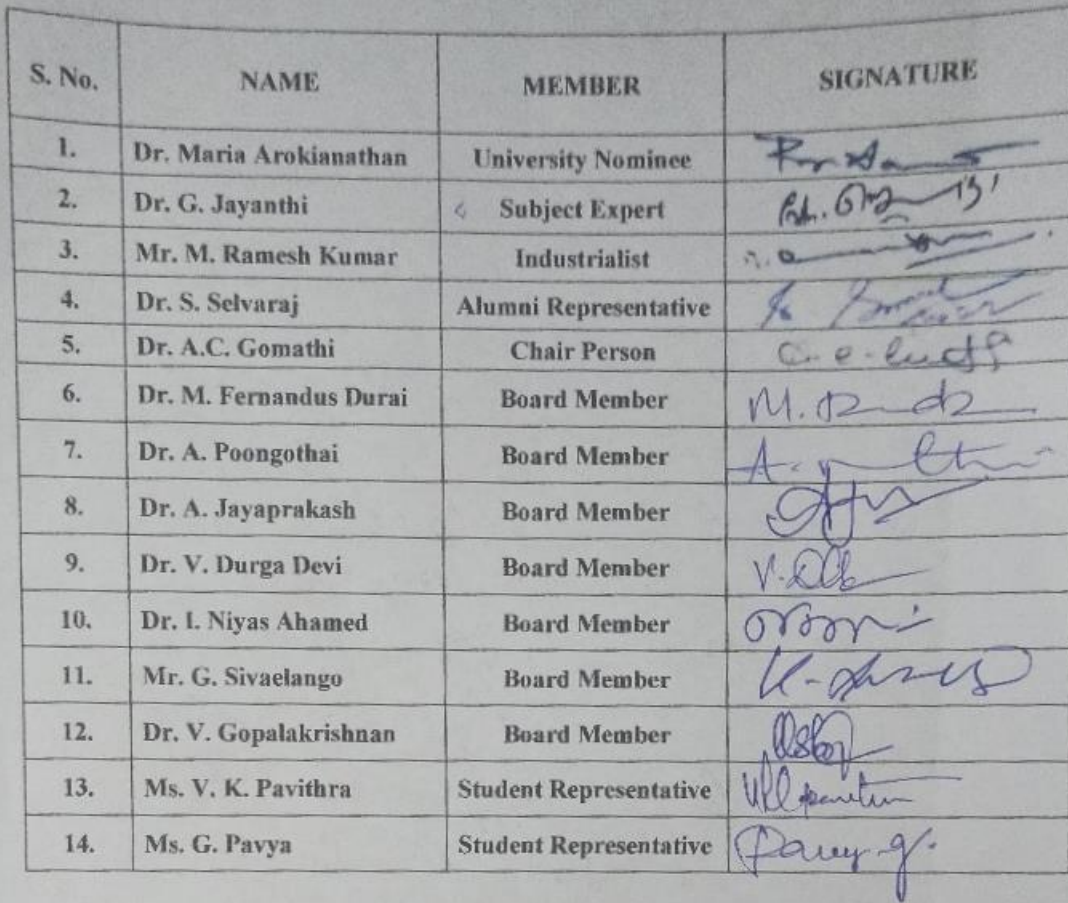 S. No. NAME MEMBER SIGNATURE
1. Dr. Maria Arokianathan University Nominee
2. Dr. G. Jayanthi Subject Expert
3. Mr. M. Ramesh Kumar Industrialist
4. Dr. S. Selvaraj Alumni Representative
5. Dr. A.C. Gomathi Chair Person
6. Dr. M. Fernandus Durai Board Member
7. Dr. A. Poongothai Board Member
8. Dr. A. Jayaprakash Board Member
9. Dr. V. Durga Devi Board Member
10. Dr. I. Niyas Ahamed Board Member
11. Mr. G. Sivaelango Board Member
12. Dr. V. Gopalakrishnan Board Member
13. Ms. V. K. Pavithra Student Representative
14. Ms. G. Pavya Student Representative